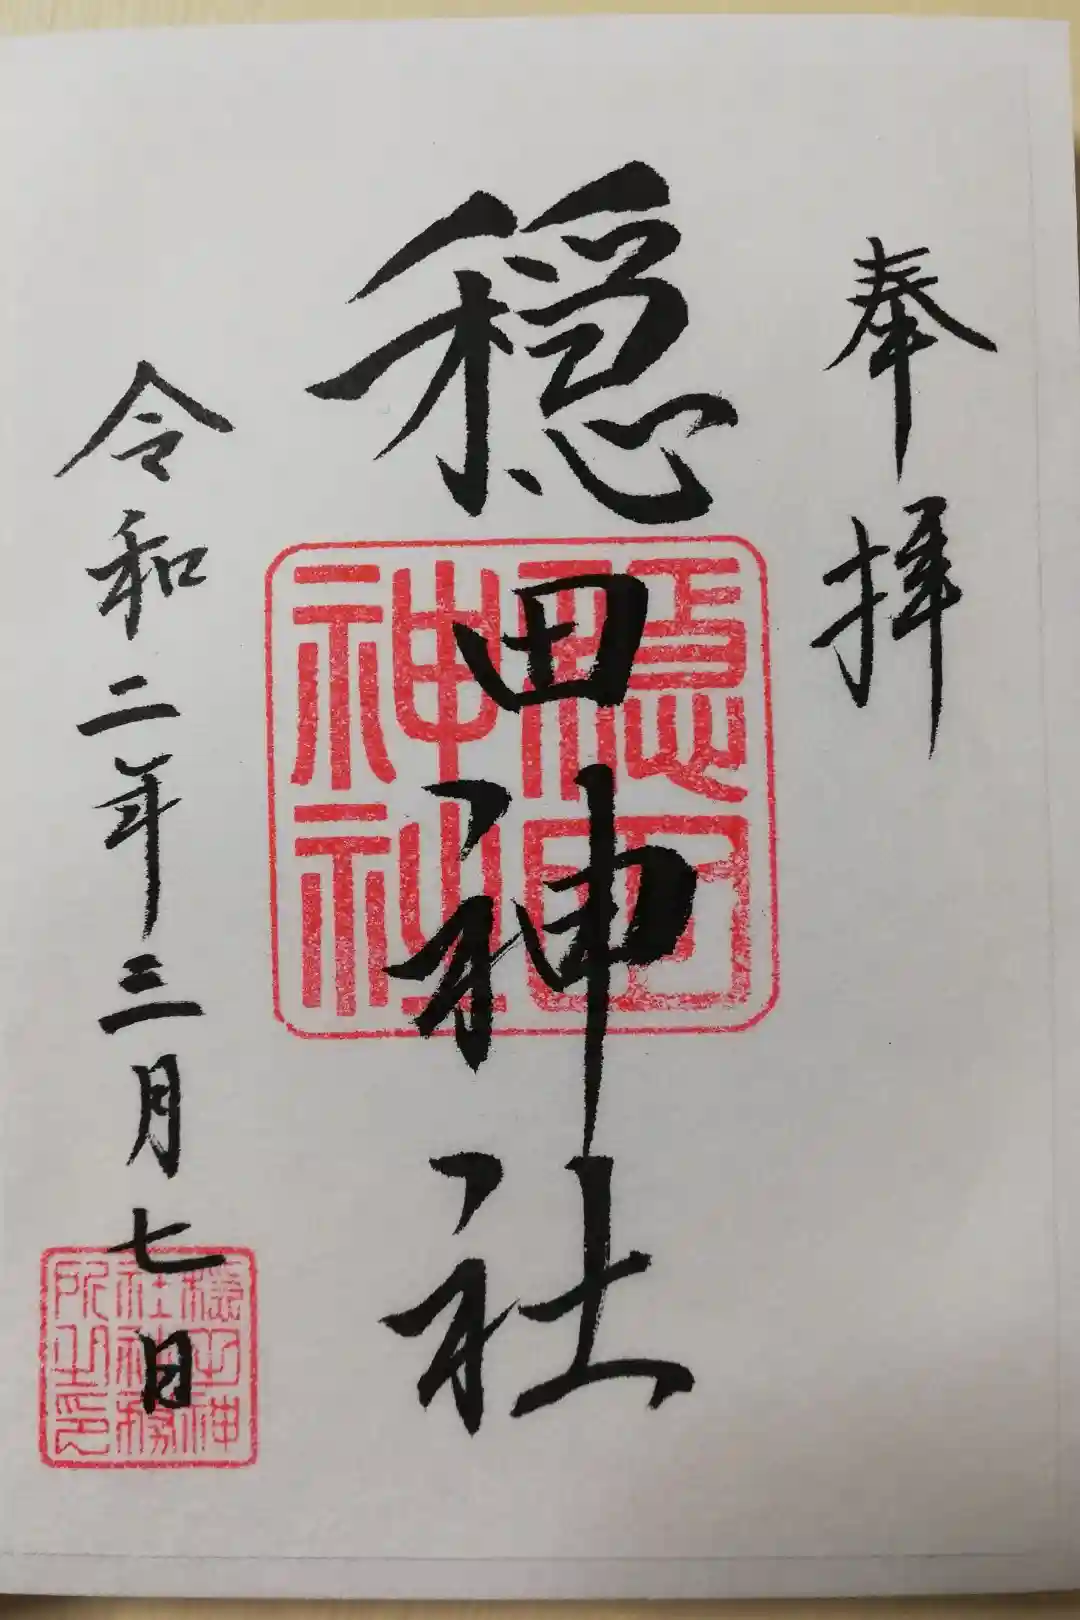 奉拝
穏田神社
穏田神社
令和二年三月七日
穏田神社社務所之印